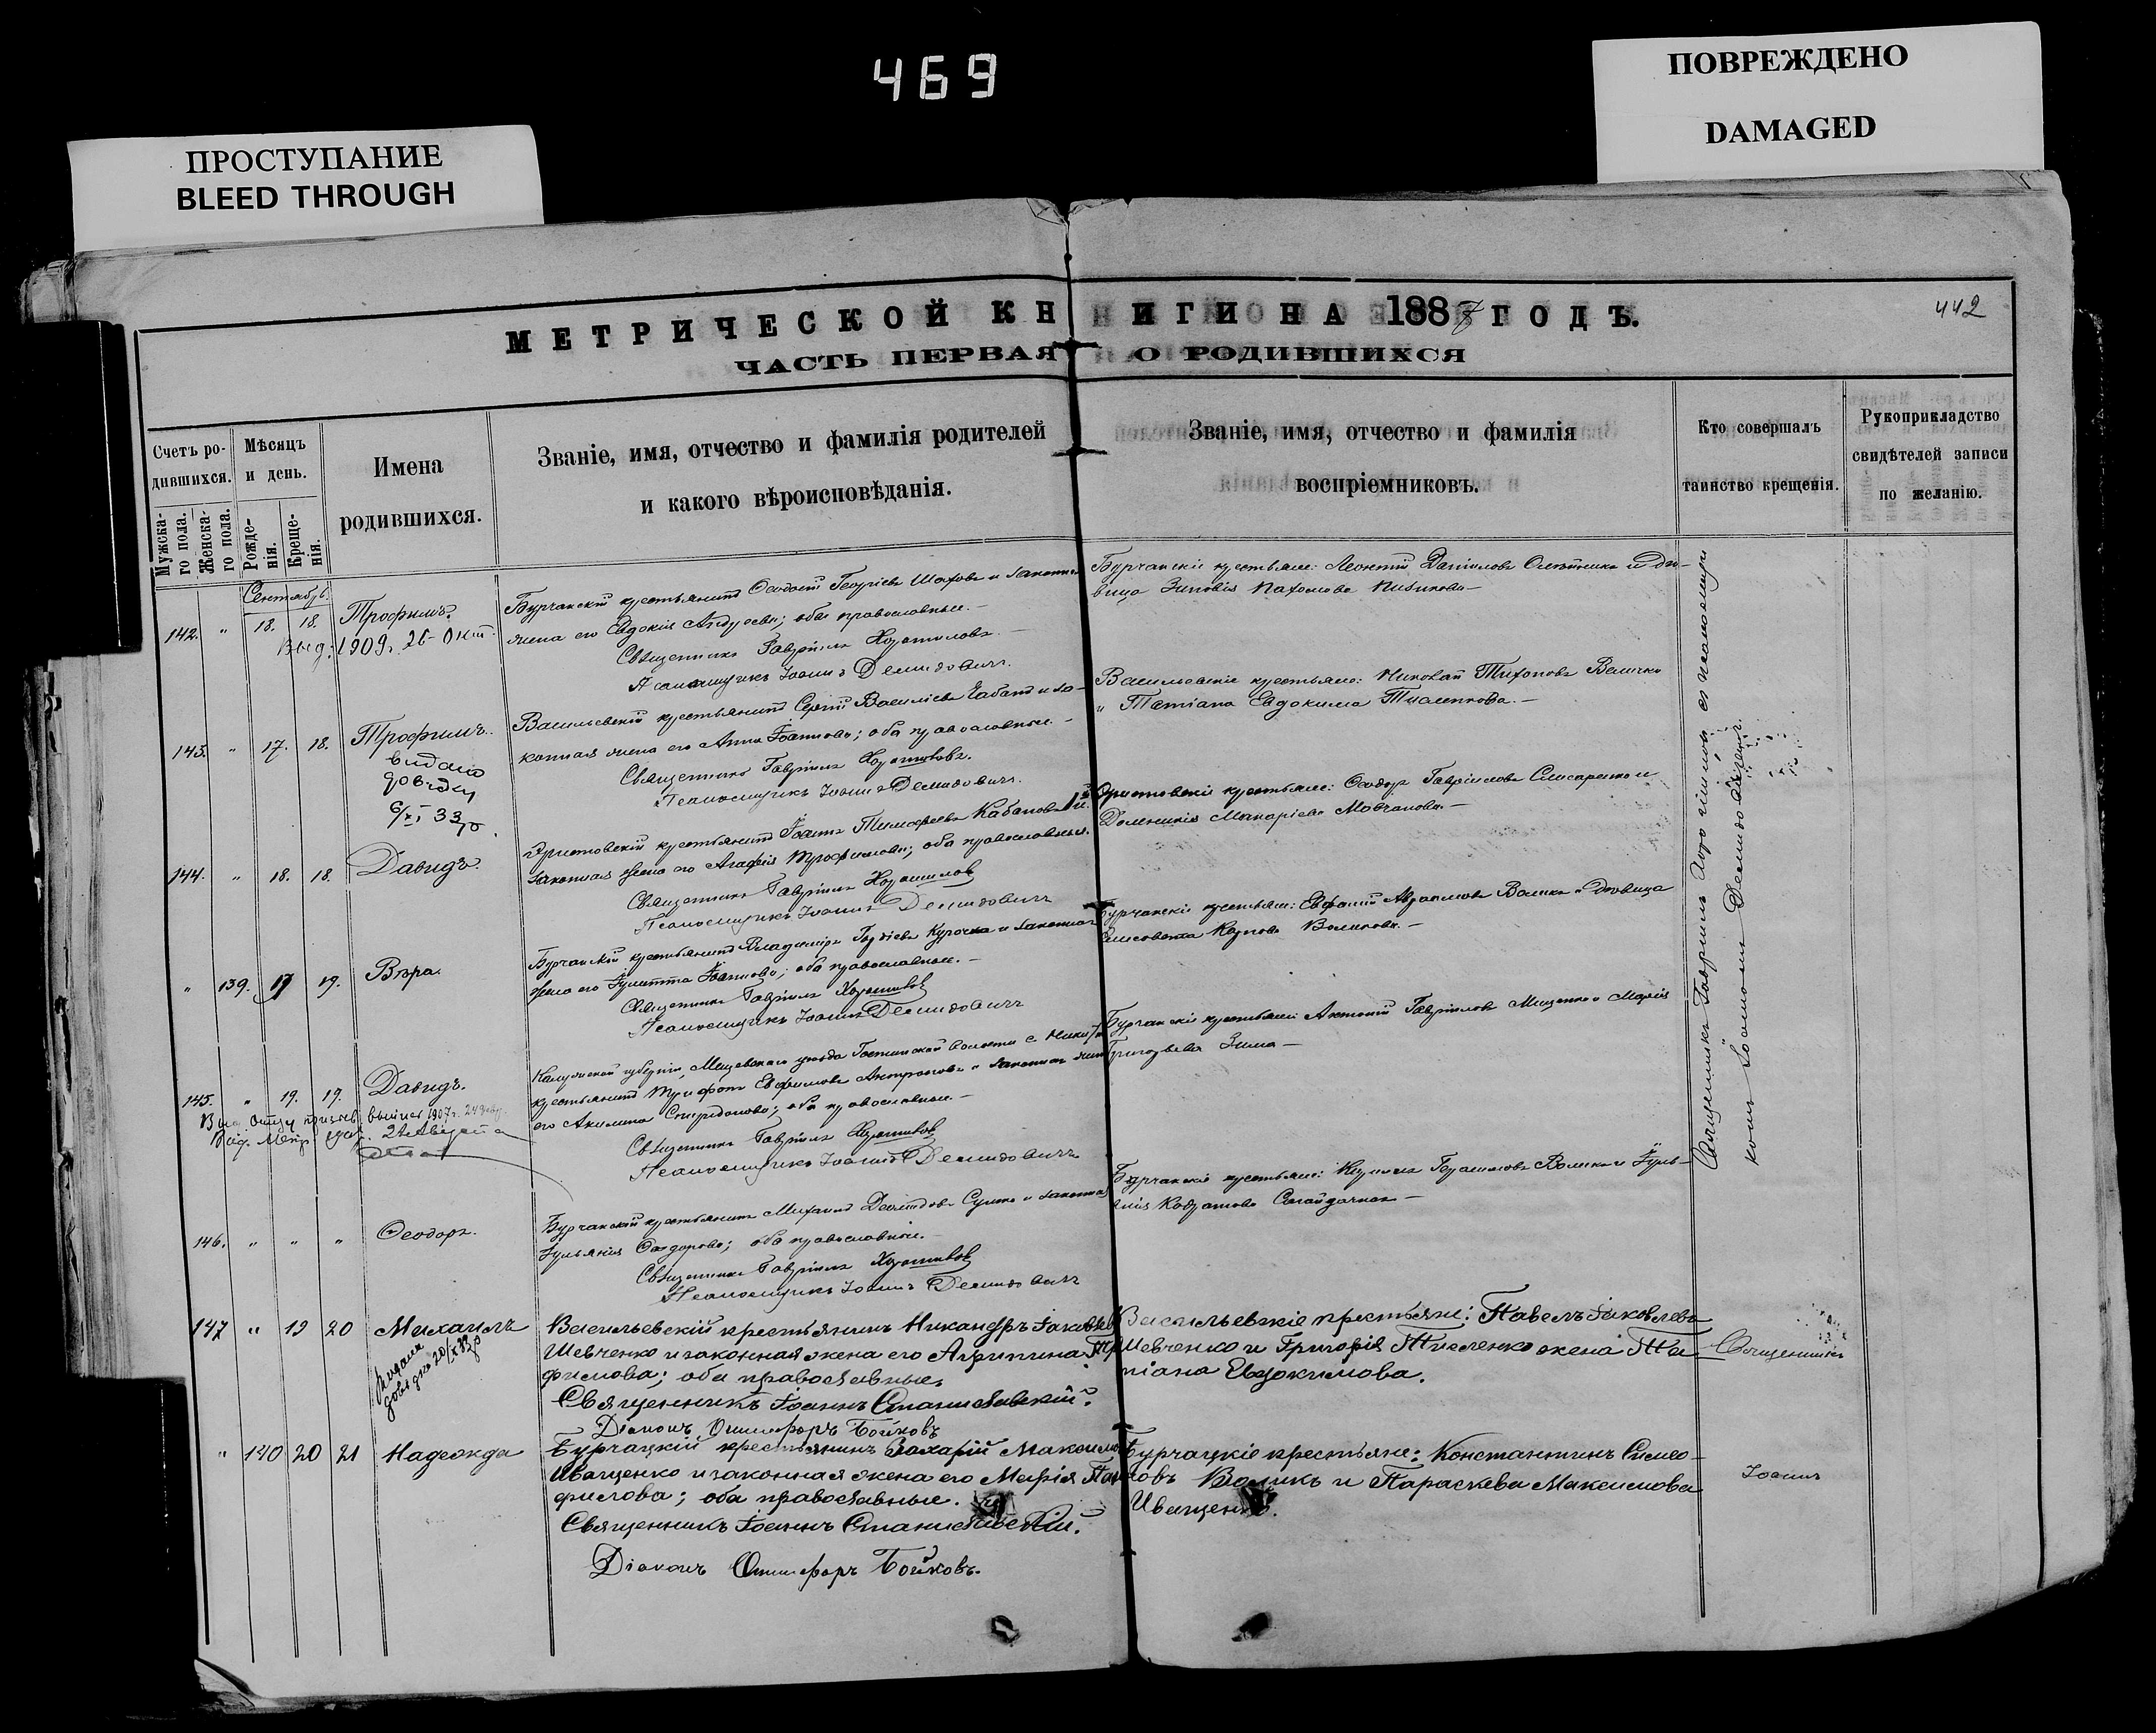 469
ПРОСТУПАНИЕ
BLEED THROUGH
ПОВРЕЖДЕНО
DAMAGED
442
МЕТРИЧЕСКОЙ КНИГИ НА 1887 ГОДЪ.
ЧАСТЬ ПЕРВАЯ О РОДИВШИХСЯ
Счетъ ро-
дившихся.
Мужска-
го пола.
Женска-
го пола.
Мѣсяцъ
и день.
Рожде-
нія.
Креще-
нія.
Имена
родившихся.
Званіе, имя, отчество и фамилія родителей
и какого вѣроисповѣданія.
Званіе, имя, отчество и фамилія
воспріемниковъ.
Кто совершалъ
таинство крещенія.
Рукоприкладство
свидѣтелей записи
по желанію.
Сентябрь
142. " 18. 18. Трофимъ.
Выд. 1909 г. 26 Окт.
Бурчанскій крестьянинъ Ѳеодосій Георгіевъ Шаховъ и законная
жена его Евдокія Андреева; оба православные.
Священникъ Гавріилъ Хорошиловъ
Псаломщикъ Іоаннъ Демидовичъ.
Бурчанскіе крестьяне: Леонтій Даніиловъ Олейникъ и дѣ-
вица Зиновія Пахомова
143. " 17. 18. Трофимъ.
видано
довідку
33 р.
Васильевскій крестьянинъ Сергій Васильевъ Чабанъ и за-
конная жена его Анна Іоаннова; оба православные.
Священникъ Гавріилъ Хорошиловъ.
Псаломщикъ Іоаннъ Демидовичъ.
Васильевскіе крестьяне: Николай Тихоновъ Величко
и Татіана Евдокимова
144. " 18. 18. Давидъ.
крестьянинъ Іоаннъ Тимофеевъ Кабановъ и
законная жена его Агафія Трофимова; оба православные.
Священникъ Гавріилъ Хорошиловъ
Псаломщикъ Іоаннъ Демидовичъ
крестьяне: Ѳеодоръ Гавріиловъ Слисаренко и
Домникія Макаріева Мовчанова.
" 139. 17 19. Вѣра.
Бурчанскій крестьянинъ Владиміръ Гордіевъ Курочка и законная
жена его Іулитта Іоаннова; оба православные.
Священникъ Гавріилъ Хорошиловъ
Псаломщикъ Іоаннъ Демидовичъ
Бурчанскіе крестьяне: Евфимій Авраамовъ Воликъ и дѣвица
Елисавета Карпова Воликова.
145. " 19. 19. Давидъ.
Калужской губерніи, Мещовскаго уѣзда волости с.
крестьянинъ Трифонъ Евфимовъ и законная жена
его Акилина Спиридонова; оба православные.
Священникъ Гавріилъ Хорошиловъ
Псаломщикъ Іоаннъ Демидовичъ
Бурчанскіе крестьяне: Антоній Гавріиловъ Мищенко и Марія
Григорьева Зима
146. " " " Ѳеодоръ.
Бурчанскій крестьянинъ Михаилъ Сушко и законная
Іуліанія Ѳеодорова; оба православные.
Священникъ Гавріилъ Хорошиловъ
Псаломщикъ Іоаннъ Демидовичъ
Бурчанскіе крестьяне: Герасимовъ Воликъ и Іуль-
янія Кодратова Сагайдачная
Священникъ Гавріилъ Хорошиловъ съ псаломщи-
комъ Іоанномъ Демидовичемъ.
147 " 19 20 Михаилъ
Васильевскій крестьянинъ Никандръ Іаковлевъ
Шевченко и законная жена его Агрипина Тро-
фимова; оба православные.
Священникъ Іоаннъ Станиславскій.
Діаконъ Онисифоръ Бойковъ
Васильевскіе крестьяне: Павелъ Іаковлевъ
Шевченко и Григорія Тисленко жена Та-
тіана Евдокимова.
Священникъ
" 140 20 21 Надежда
Бурчацкій крестьянинъ Захарій Максимовъ
Иващенко и законная жена его Марія Пан-
филова; оба православные.
Священникъ Іоаннъ Станиславскій.
Діаконъ Онисифоръ Бойковъ.
Бурчацкіе крестьяне: Константинъ Симео-
новъ Воликъ и Параскева Максимова
Иващенко.
Іоаннъ